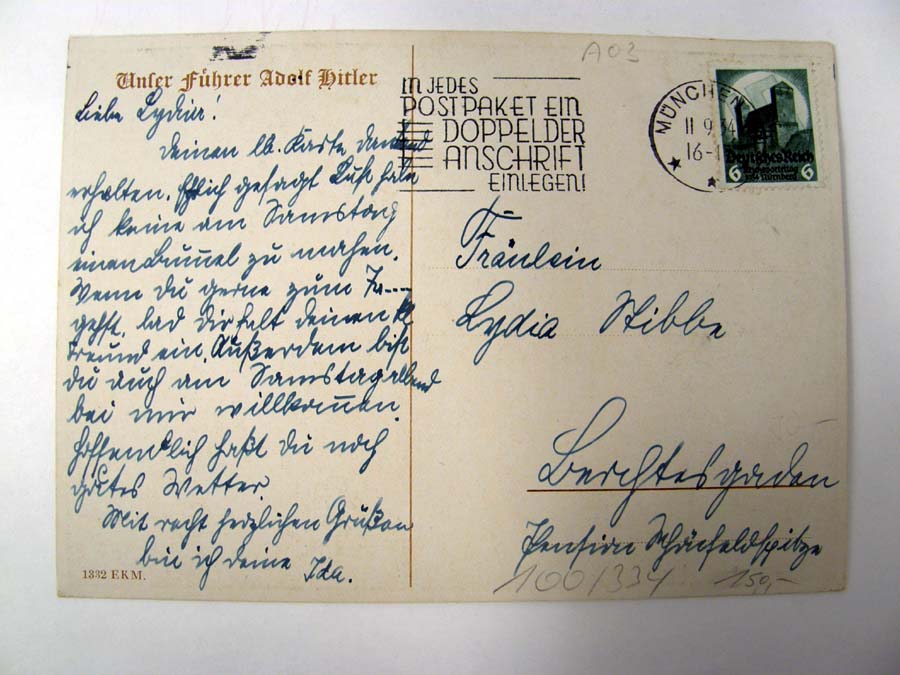 Unser Führer Adolf Hitler
Liebe Lydia!
Deinen lb. Karte dankend
erhalten. Ehrlich gesagt Lust habe
ich keine am Samstag
einen Bummel zu machen.
Wenn du gerne zum
gehst, lad dir halt deinen
Freund ein. Außerdem bist
du auch am Samstagabend
bei mir willkommen.
Hoffentlich hast du noch
gutes Wetter.
Mit recht herzlichen Grüßen
bin ich deine Ida.
1332 EKM.
A03
IN JEDES
POSTPAKET EIN
DOPPEL DER
ANSCHRIFT
EINLEGEN!
MÜNCHEN
11 9.34
16-1
Deutsches Reich
6 Reichsparteitag 6
1934 Nürnberg
Fräulein
Lydia Stibbe
Berchtesgaden
Pension
100/334
150,-